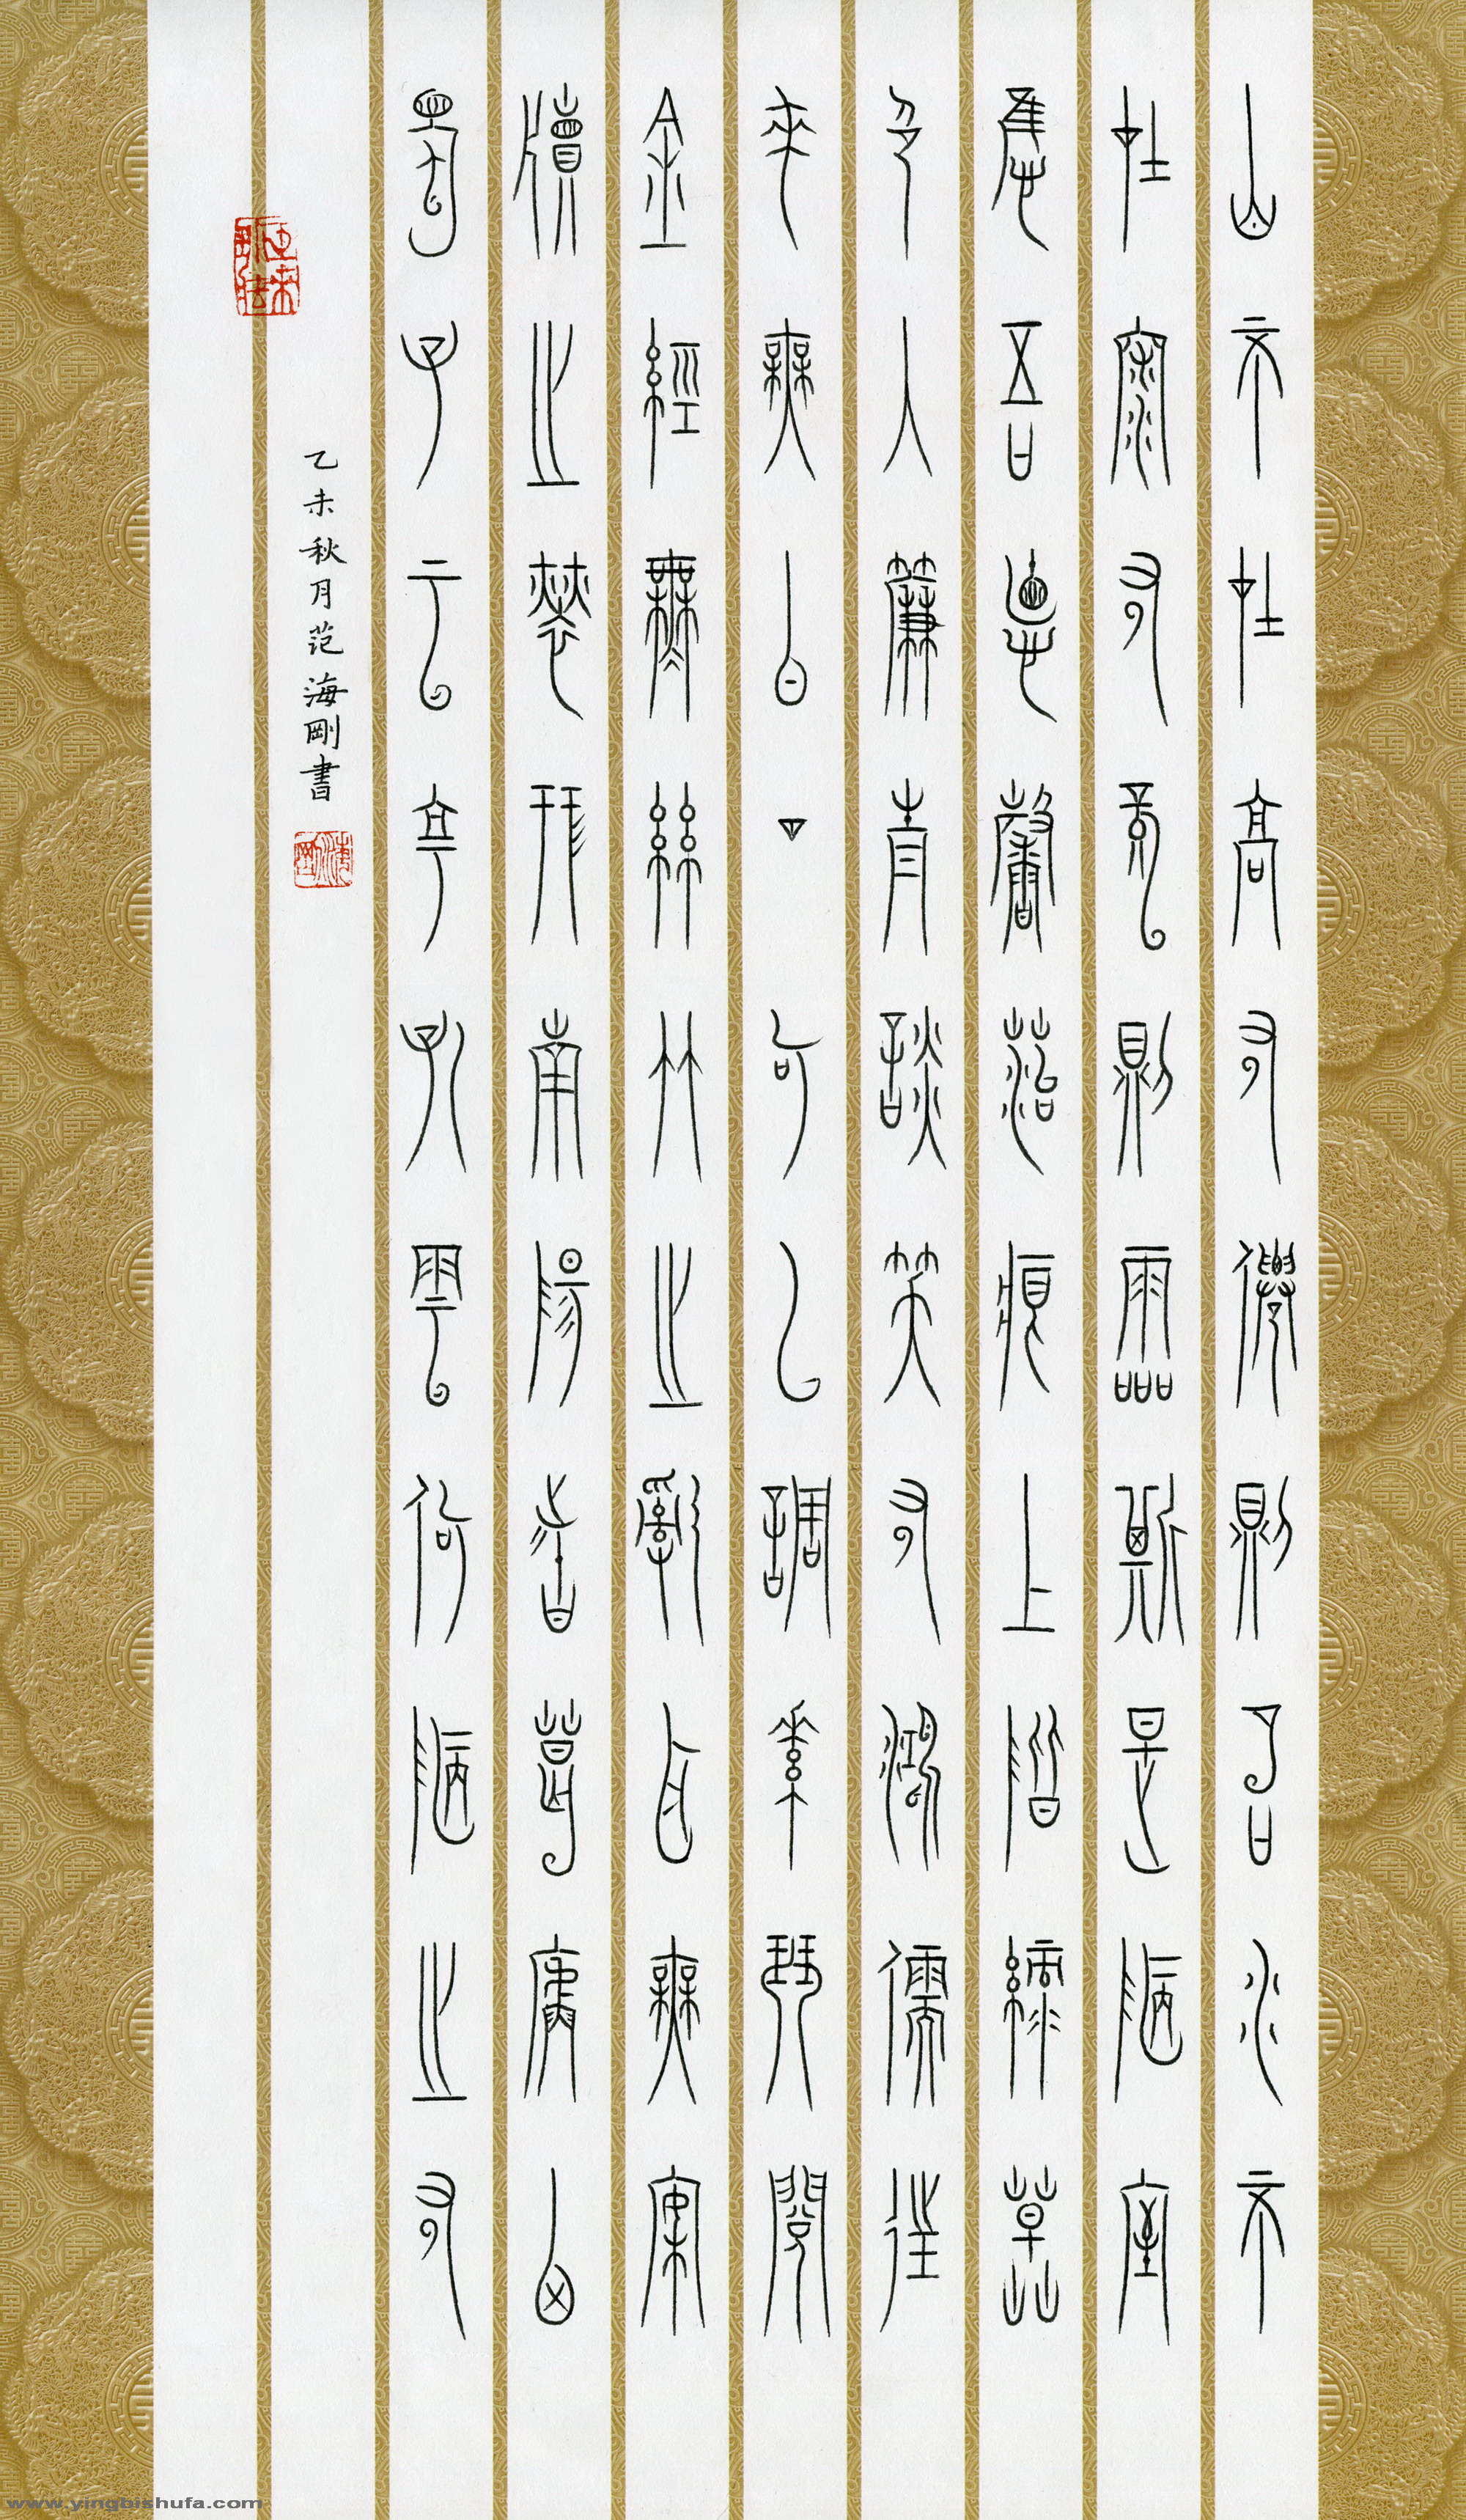 山不在高有僊則名水不
在深有龍則靈斯是陋室
惟吾德馨苔痕上階綠草
色入簾青談笑有鴻儒往
來無白丁可以調素琴閱
金經無絲竹之亂耳無案
牘之勞形南陽諸葛廬西
蜀子云亭孔雲何陋之有
乙未秋月范海剛書
www.yingbishufa.com